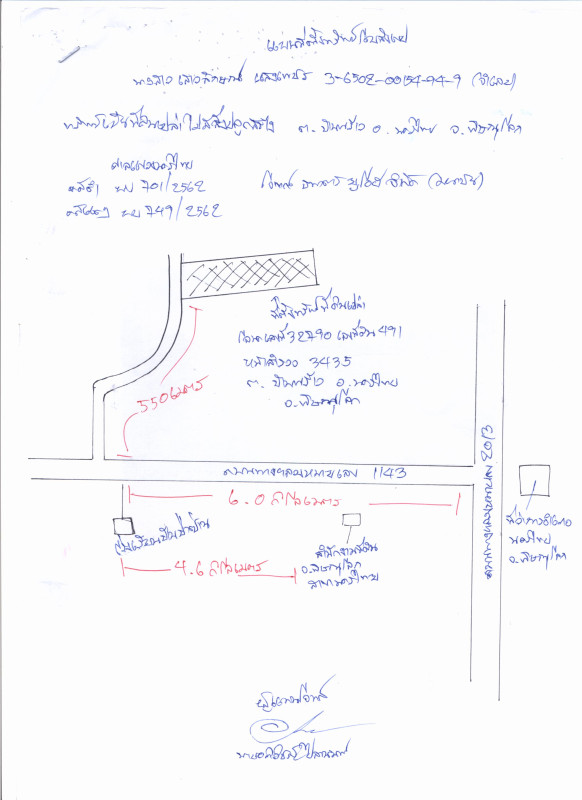 แผนที่ตั้งทรัพย์โดยสังเขป
นางสาว เสาวลักษณ์ 3-6502-00154-94-9 (จำเลย)
ทรัพย์เป็นที่ดินเปล่า ไม่มีสิ่งปลูกสร้าง ต. บ้านพร้าว อ. นครไทย จ. พิษณุโลก
ศาลแขวงนครไทย
คดีดำ ผบ 701/2562
คดีแดง ผบ 749/2562
โจทก์ ธนาคาร จำกัด (มหาชน)
ที่ตั้งทรัพย์ที่ดินเปล่า
โฉนดเลขที่ 32790 เลขที่ดิน 491
หน้าสำรวจ 3435
ต. บ้านพร้าว อ. นครไทย
จ. พิษณุโลก
550 เมตร
ถนนทางหลวงหมายเลข 1143
6.0 กิโลเมตร
ถนนทางหลวงหมายเลข 2013
โรงเรียนบ้าน
สำนักงานที่ดิน
จ. พิษณุโลก
สาขานครไทย
4.6 กิโลเมตร
ที่ว่าการอำเภอ
นครไทย
จ. พิษณุโลก
ผู้แทนโจทก์